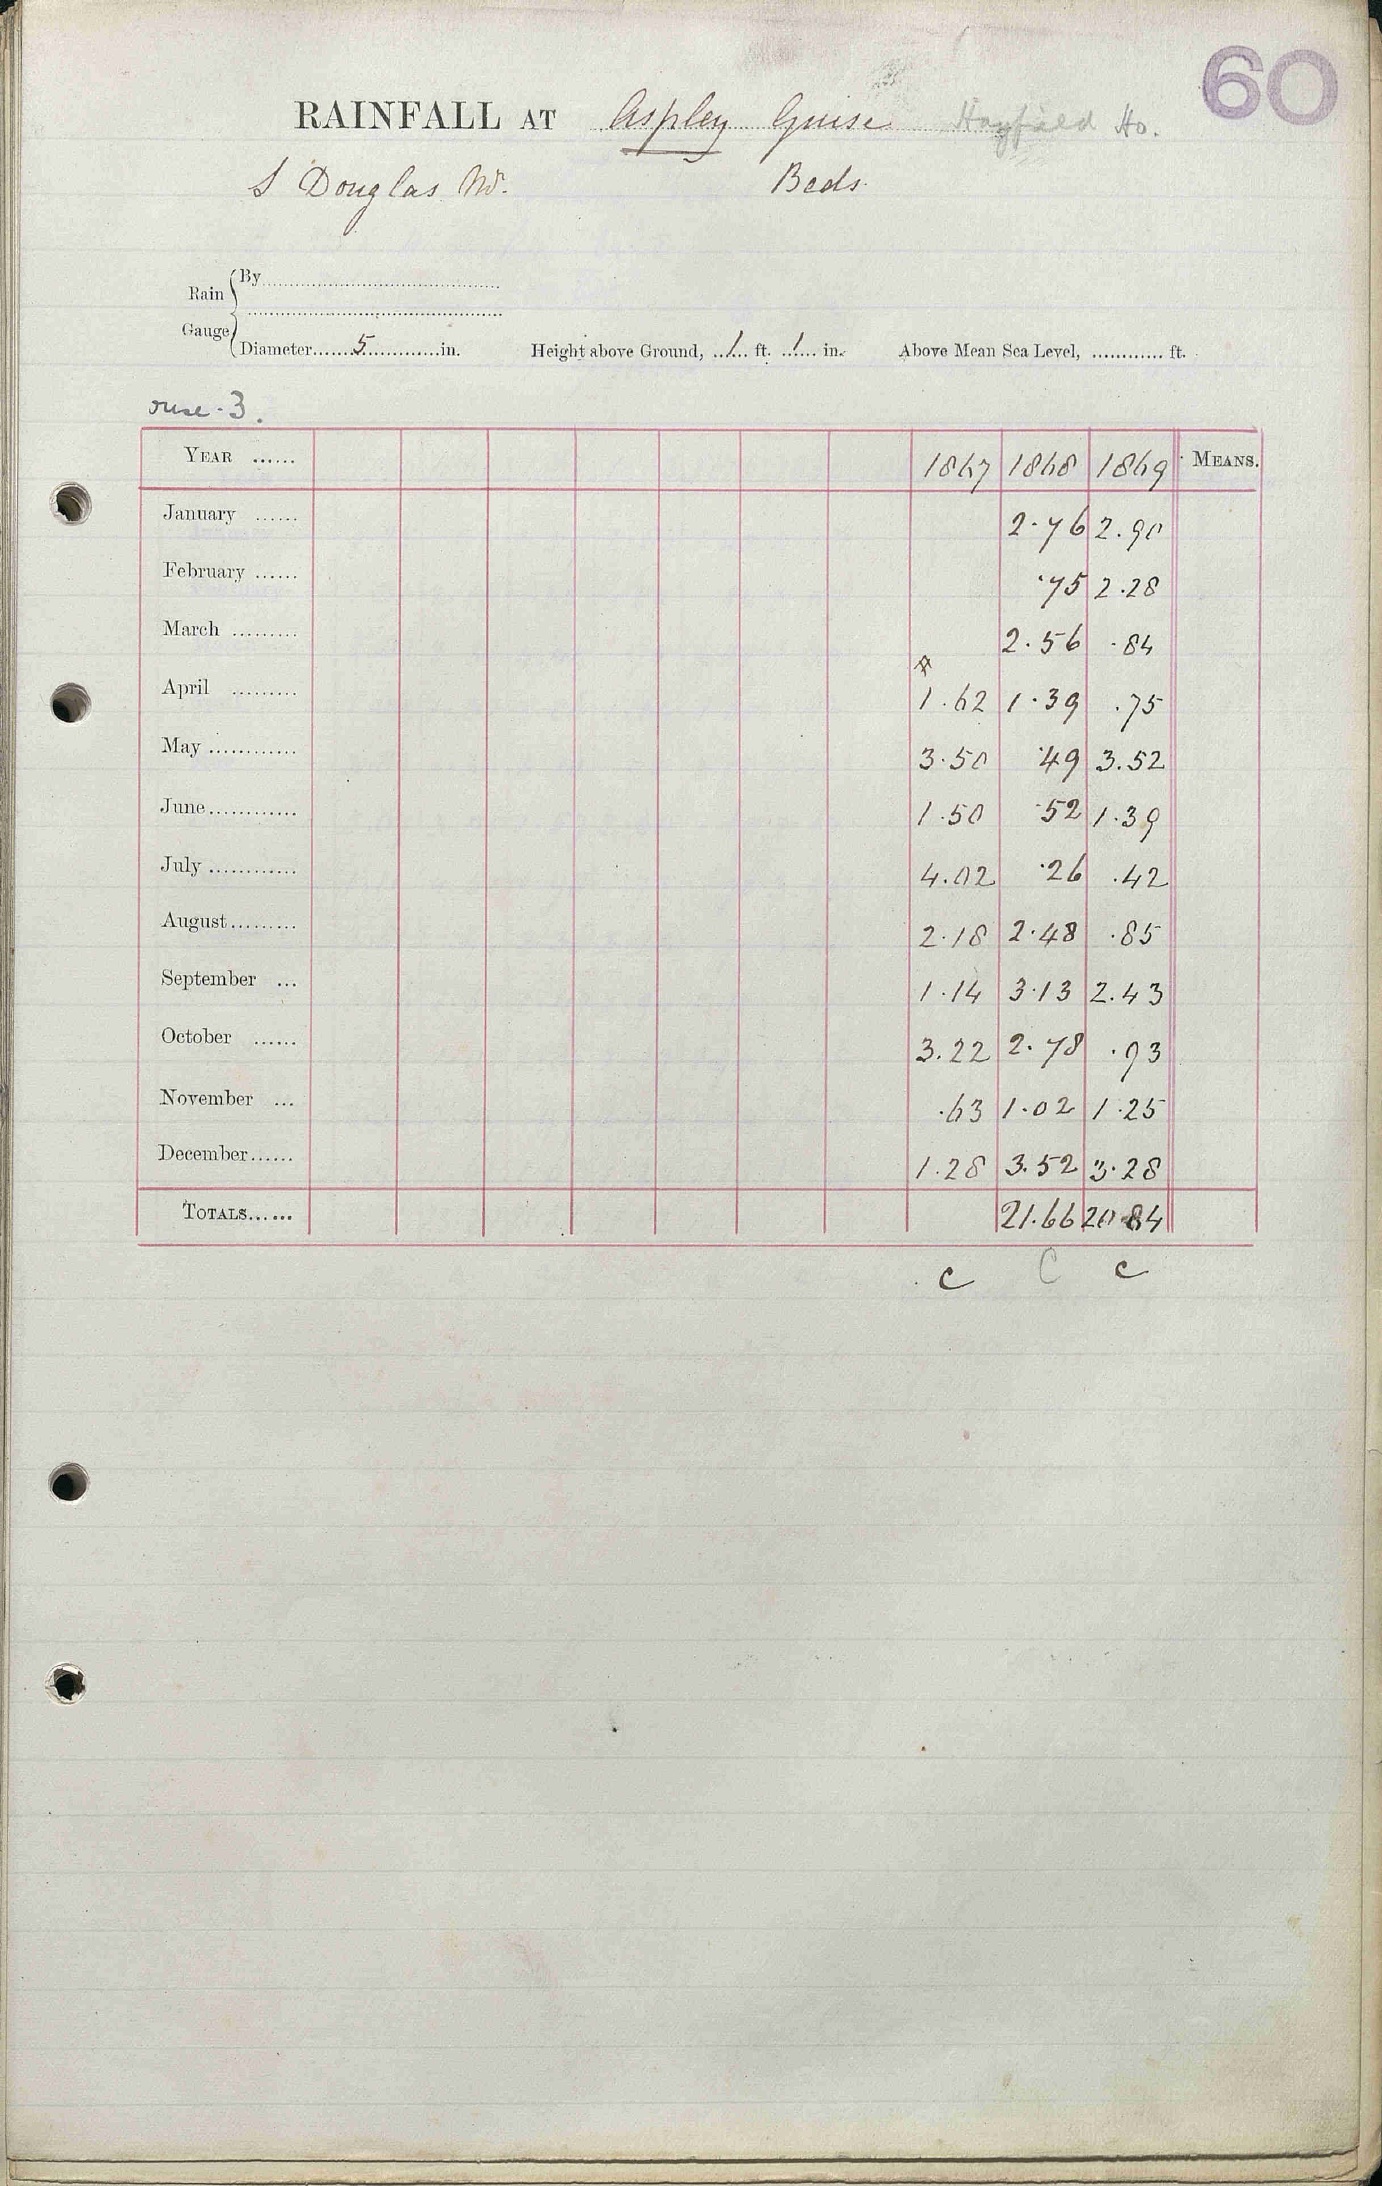 60
RAINFALL AT Aspley Guise Hayfield Ho.
S Douglas Beds.
Rain Gauge { By
Diameter 5 in. Height above Ground, 1 ft. 1 in. Above Mean Sea Level, ft.
ouse. 3.
YEAR 1867 1868 1869 MEANS.
January 2.76 2.90
February .75 2.28
March 2.56 .84
April 1.62 1.39 .75
May 3.50 .49 3.52
June 1.50 .52 1.39
July 4.02 .26 .42
August 2.18 2.48 .85
September 1.14 3.13 2.43
October 3.22 2.78 .93
November .63 1.02 1.25
December 1.28 3.52 3.28
TOTALS 21.66 20.84
c C c